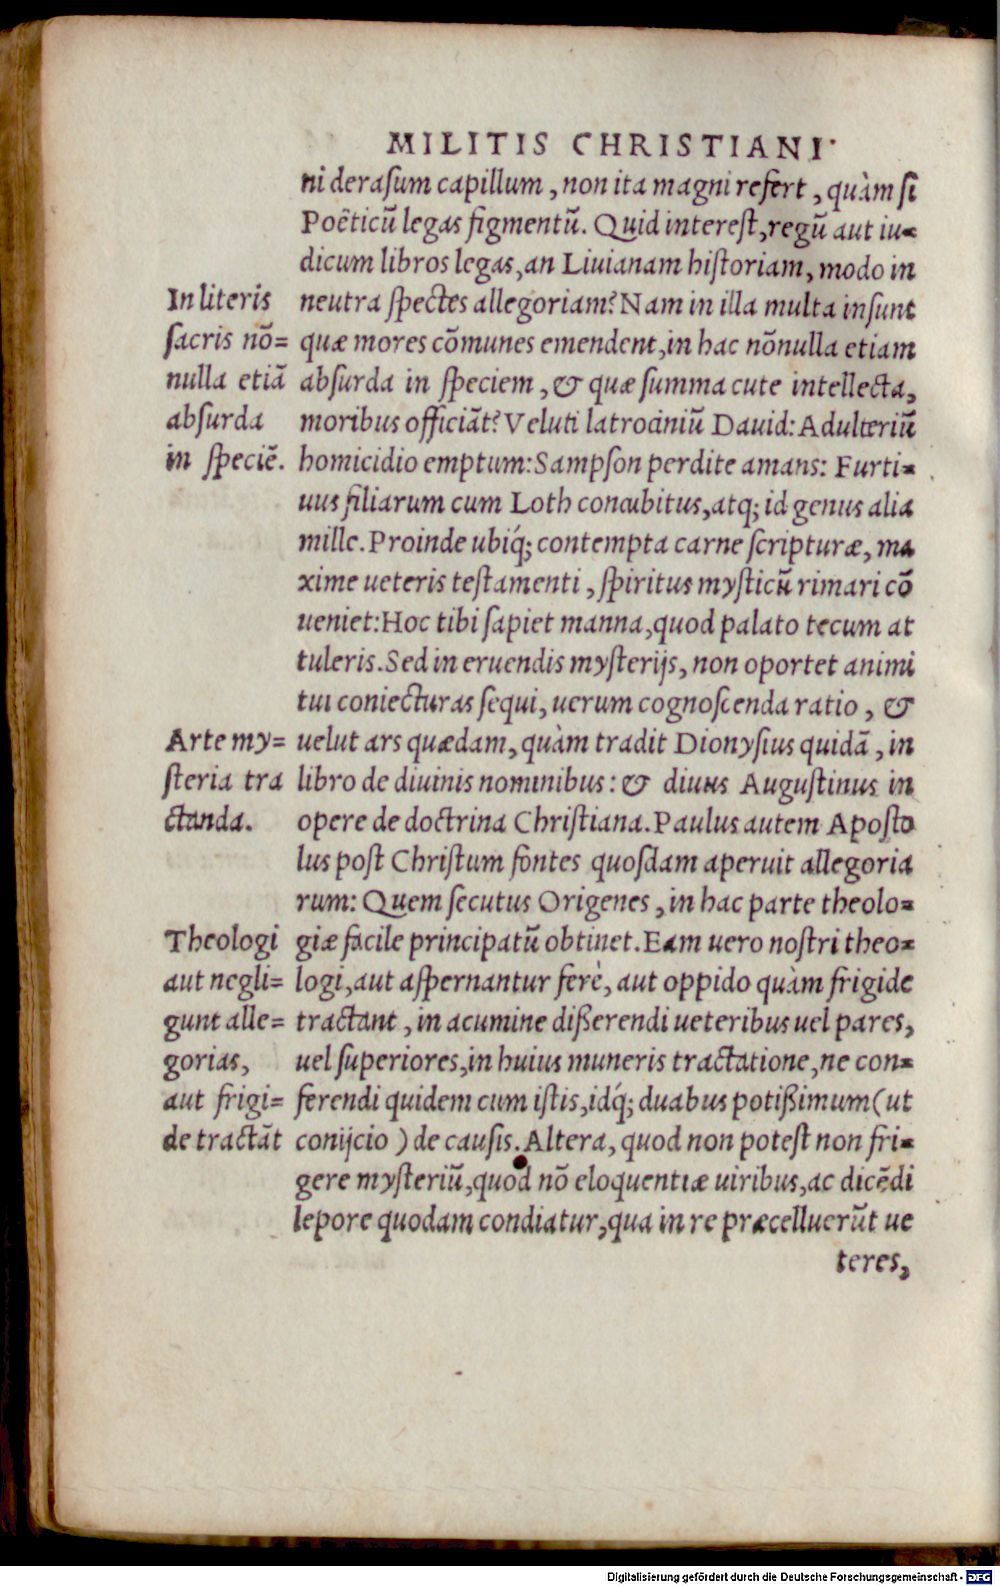 MILITIS CHRISTIANI
ni derasum capillum, non ita magni refert, quàm si
Poëticū legas figmentū. Quid interest, regū aut iu-
dicum libros legas, an Liuianam historiam, modo in
In literis
neutra spectes allegoriam? Nam in illa multa insunt
sacris nō=
quæ mores cōmunes emendent, in hac nōnulla etiam
nulla etiā
absurda in speciem, & quæ summa cute intellecta,
absurda
moribus officiāt? Veluti latrociniū Dauid: Adulteriū
in speciē.
homicidio emptum: Sampson perdite amans: Furti-
uus filiarum cum Loth concubitus, atq; id genus alia
mille. Proinde ubiq́; contempta carne scripturæ, ma
xime ueteris testamenti, spiritus mysticū rimari cō
ueniet: Hoc tibi sapiet manna, quod palato tecum at
tuleris. Sed in eruendis mysterijs, non oportet animi
tui coniecturas sequi, uerum cognoscenda ratio, &
Arte my=
uelut ars quædam, quàm tradit Dionysius quidā, in
steria tra
libro de diuinis nominibus: & diuus Augustinus in
ctanda.
opere de doctrina Christiana. Paulus autem Aposto
lus post Christum fontes quosdam aperuit allegoria
rum: Quem secutus Origenes, in hac parte theolo-
Theologi
giæ facile principatū obtinet. Eam uero nostri theo-
aut negli=
logi, aut aspernantur ferè, aut oppido quàm frigide
gunt alle=
tractant, in acumine disserendi ueteribus uel pares,
gorias,
uel superiores, in huius muneris tractatione, ne con-
aut frigi=
ferendi quidem cum istis, idq́; duabus potissimum (ut
de tractāt
conijcio) de causis. Altera, quod non potest non fri-
gere mysteriū, quod nō eloquentiæ uiribus, ac dicēdi
lepore quodam condiatur, qua in re præcelluerūt ue
teres,
Digitalisierung gefördert durch die Deutsche Forschungsgemeinschaft - DFG